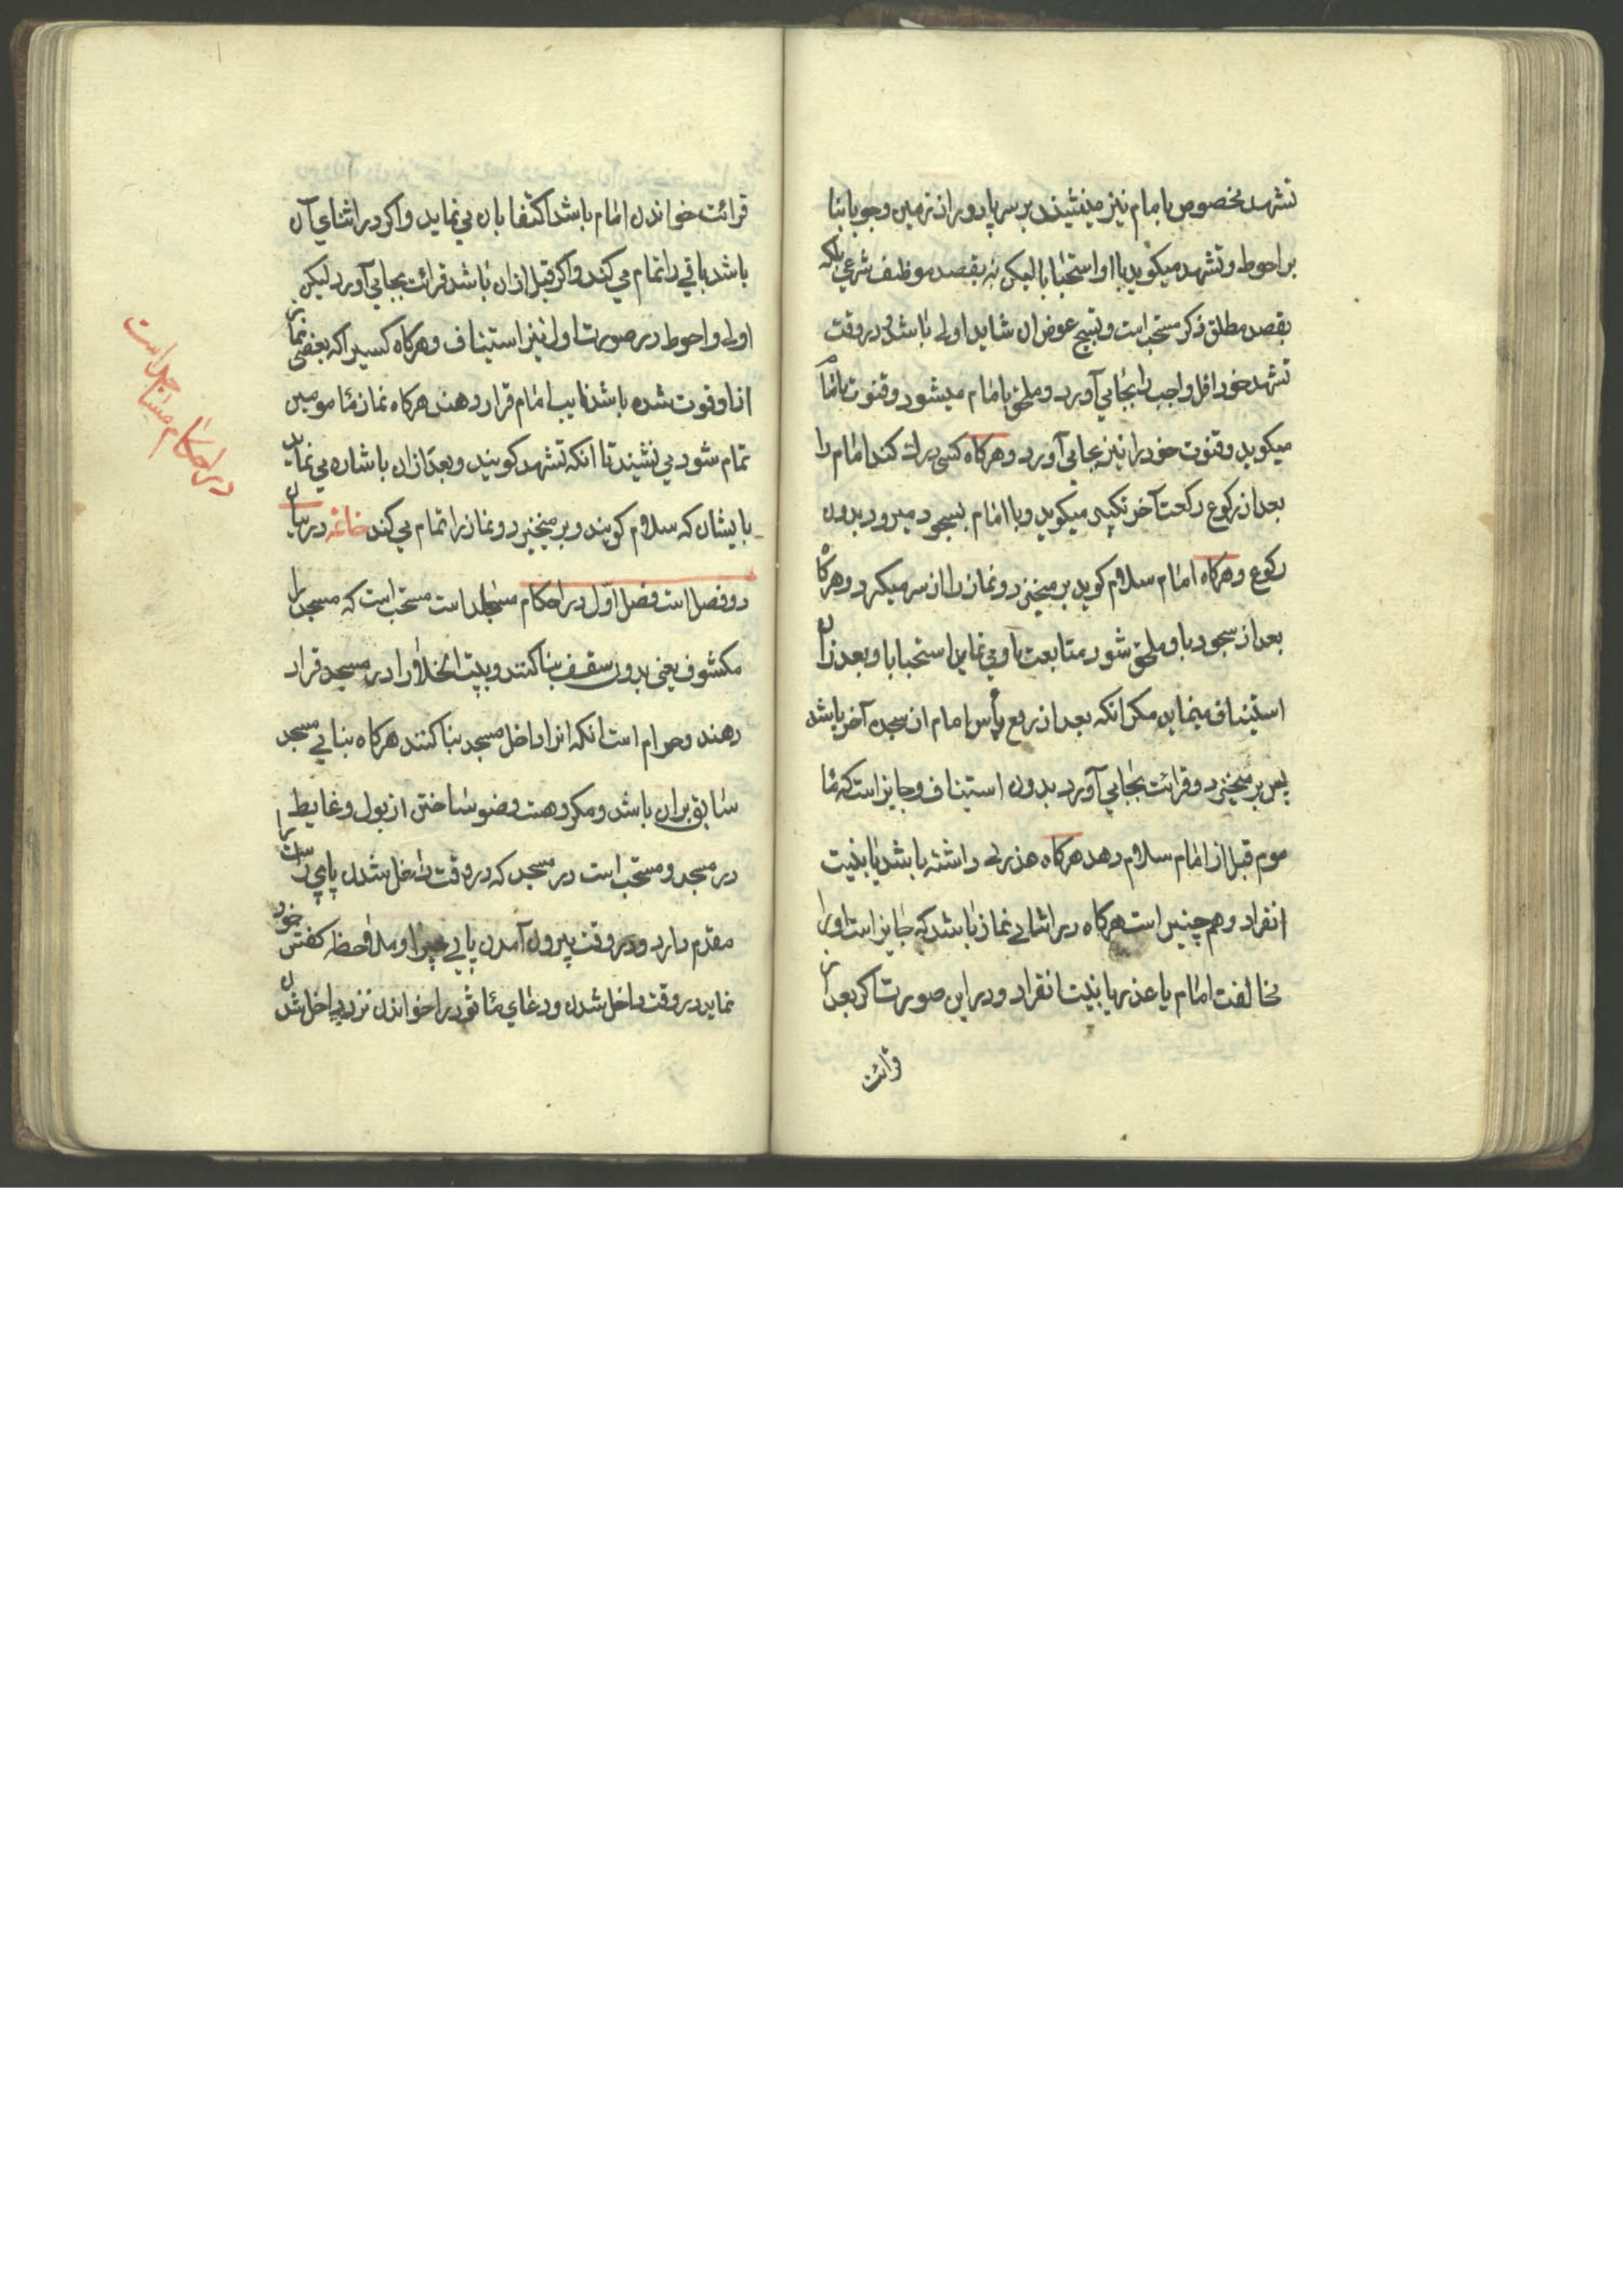 تشهد مخصوص بامام نیز مینشیند بر سر پا دور از زمین وجوبا بنا
بر احوط و تشهد میکوید با او استحبابا لیکن نه بقصد موظف شرعی بلکه
بقصد مطلق ذکر مستحب است و تسبیح عوض ان شاید اولی باشد و در وقت
تشهد خود اقل واجب را بجا می آورد و ملحق بامام میشود و قنوت با امام
میکوید و قنوت خود را نیز بجا می آورد و هرکاه کسی درک کند امام را
بعد از رکوع رکعت آخر تکبیر میکوید و با امام بسجود میرود بدون
رکوع و هرکاه امام سلام کوید بر میخیزد و نماز را از سر میکیرد و هرکاه
بعد از سجود باو ملحق شود متابعت او می نماید استحبابا و بعد از ان
استیناف مینماید مکر انکه بعد از رفع رأس امام از سجده آخر باشد
پس بر میخیزد و قرائت بجا می آورد بدون استیناف و جایز است که ما
موم قبل از امام سلام دهد هرکاه عذری داشته باشد یا بنیت
انفراد و هم چنین است هرکاه در اثنای نماز باشد که جایز است او را
مخالفت امام یا عذر یا بنیت انفراد و در این صورت اکر بعد از
قرائت
قرائت خواندن امام باشد اکتفا بان می نماید و اکر در اثنای آن
باشد باقی را تمام می کند و اکر قبل از ان باشد قرائت بجا می آورد لیکن
اولی و احوط در صورت اول نیز استیناف و هرکاه کسیرا که بعضی نماز
از او فوت شده باشد نایب امام قرار دهند هرکاه نماز مامومین
تمام شود می نشیند تا انکه تشهد کویند و بعد از ان باشاره می نماید
بایشان که سلام کویند و بر میخیزد و نماز را تمام می کند خاتمه در بیان
دو فصل است فصل اول در احکام مساجد است مستحب است که مسجد را
مکشوف یعنی بدون سقف بنا کنند و بیت الخلاء را در مسجد قرار
دهند و حرام است انکه انرا داخل مسجد بنا کنند هرکاه بنای مسجد
سابق بر ان باشد و مکروهست وضو ساختن از بول و غایط
در مسجد و مستحب است در مسجد که در وقت داخل شدن پای راست را
مقدم دارد و در وقت بیرون آمدن پای چپ را و ملاحظه کفش خود
نماید در وقت داخل شدن و دعای ماثور را خواندن نزد داخل شدن
در احکام مساجد است